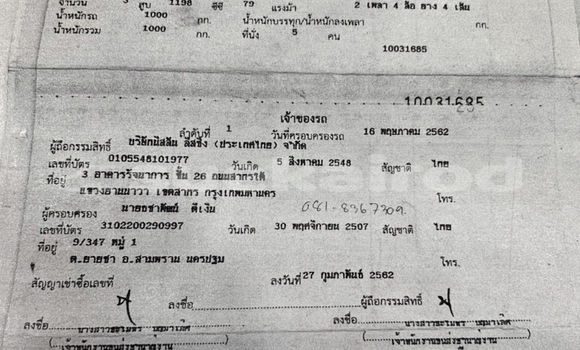 จำนวน 3 สูบ 1198 ซีซี 79 แรงม้า 2 เพลา 4 ล้อ ยาง 4 เส้น
น้ำหนักรถ 1000 กก. น้ำหนักบรรทุก/น้ำหนักลงเพลา กก.
น้ำหนักรวม 1000 กก. ที่นั่ง 5 คน
10031685
10031685
เจ้าของรถ
ลำดับที่ 1 วันที่ครอบครองรถ 16 พฤษภาคม 2562
ผู้ถือกรรมสิทธิ์ บริษัทนิสสัน ลีสซิ่ง (ประเทศไทย) จำกัด
เลขที่บัตร 0105548101977 วันเกิด 5 สิงหาคม 2548 สัญชาติ ไทย
ที่อยู่ 3 อาคารรัจนาการ ชั้น 26 ถนนสาทรใต้
แขวงยานนาวา เขตสาทร กรุงเทพมหานคร โทร.
ผู้ครอบครอง 081-8367309.
เลขที่บัตร 3102200290997 วันเกิด 30 พฤศจิกายน 2507 สัญชาติ ไทย
ที่อยู่ 9/347 หมู่ 1
ต.ยายชา อ.สามพราน นครปฐม โทร.
สัญญาเช่าซื้อเลขที่ ลงวันที่ 27 กุมภาพันธ์ 2562
ลงชื่อ ผู้ถือกรรมสิทธิ์
ลงชื่อ ลงชื่อ